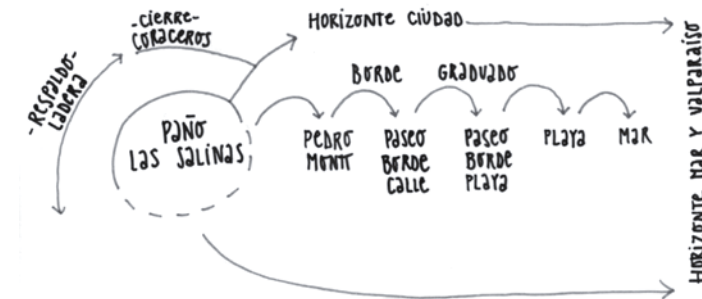 -CIERRE-
CORACEROS
HORIZONTE CIUDAD
-RESPALDO-
LADERA
BORDE GRADUADO
PAÑO
LAS SALINAS
PEDRO
MONTT
PASEO
BORDE
CALLE
PASEO
BORDE
PLAYA
PLAYA
MAR
HORIZONTE MAR Y VALPARAÍSO